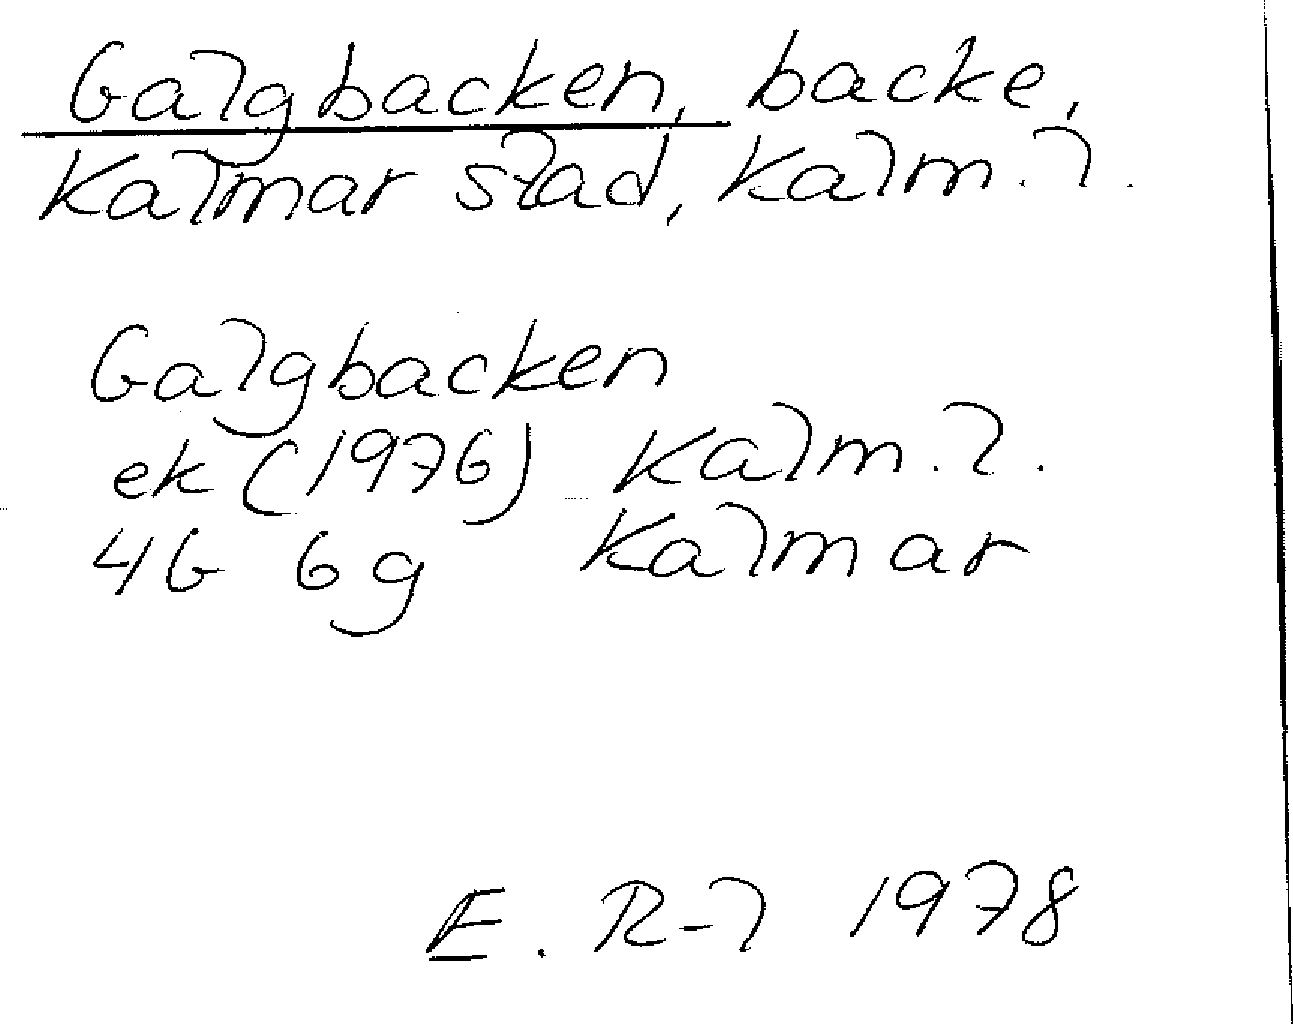 Galgbacken, backe,
Kalmar stad, Kalm. l.
Galgbacken
ek (1976) Kalm. l.
4G 6g Kalmar
E. R-l 1978